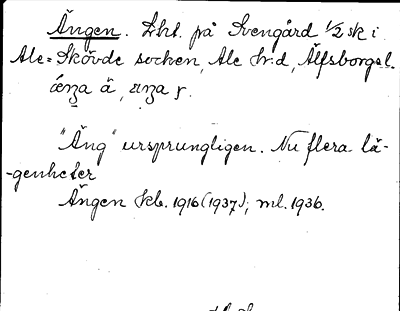 Ängen. Lht. på Svengård 1/2 sk i
Ale-Skövde socken, Ale h:d, Älfsborgs l.
"Äng" ursprungligen. Nu flera lä-
-genheter
Ängen kb. 1916 (1937); ml. 1936.